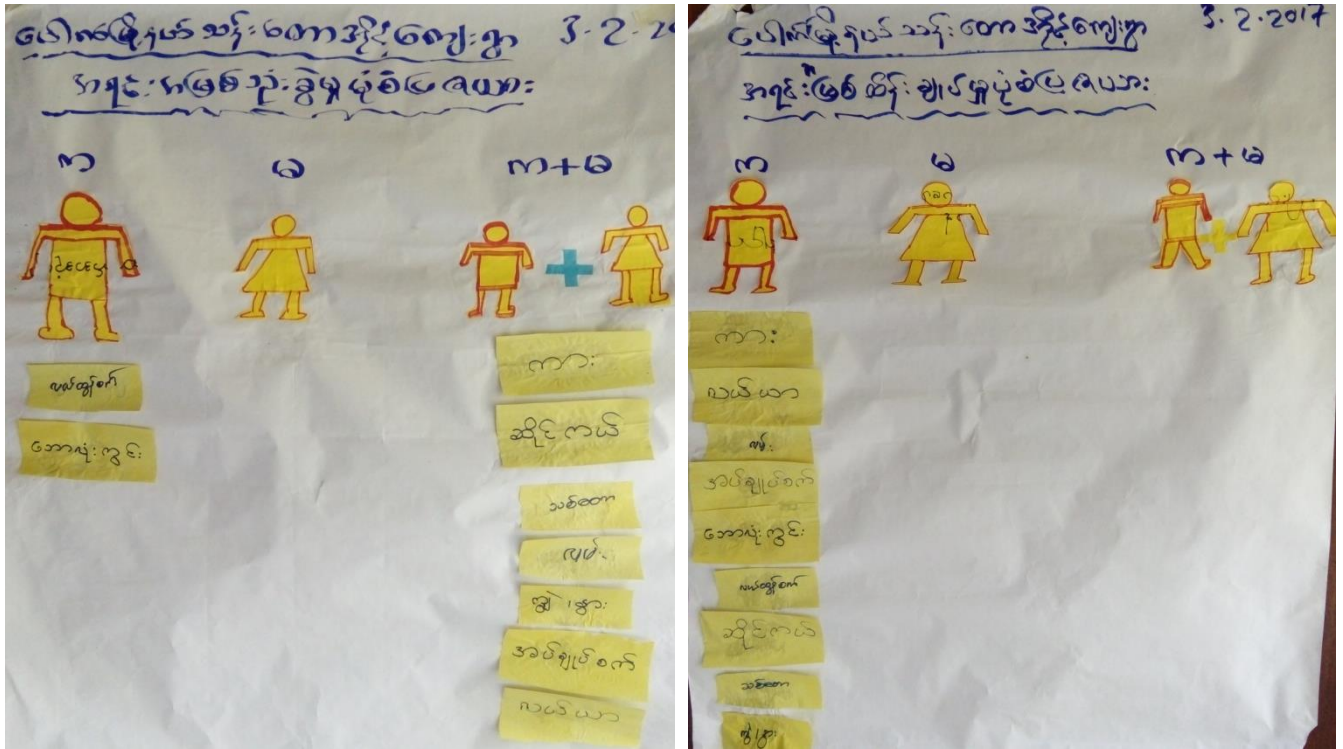 ပေါက်မြို့နယ် သန်းတောအိုင့်ကျေးရွာ 3.2.20
အရင်းအမြစ် သုံးစွဲမှု ပုံစံပြ ဇယား
ကျ
မ
ကျ+မ
လယ်ထွန်စက်
ဘောလုံးကွင်း
ကား
ဆိုင်ကယ်
သစ်တော
လမ်း
ကျွဲ၊နွား
အပ်ချုပ်စက်
လယ်ယာ
ပေါက်မြို့နယ် သန်းတောအိုင့်ကျေးရွာ 3.2.2017
အရင်းအမြစ် ထိန်းချုပ်မှု ပုံစံပြ ဇယား
ကျ
မ
ကျ+မ
ကား
လယ်ယာ
လမ်း
အပ်ချုပ်စက်
ဘောလုံးကွင်း
လယ်ထွန်စက်
ဆိုင်ကယ်
သစ်တော
ကျွဲ၊နွား